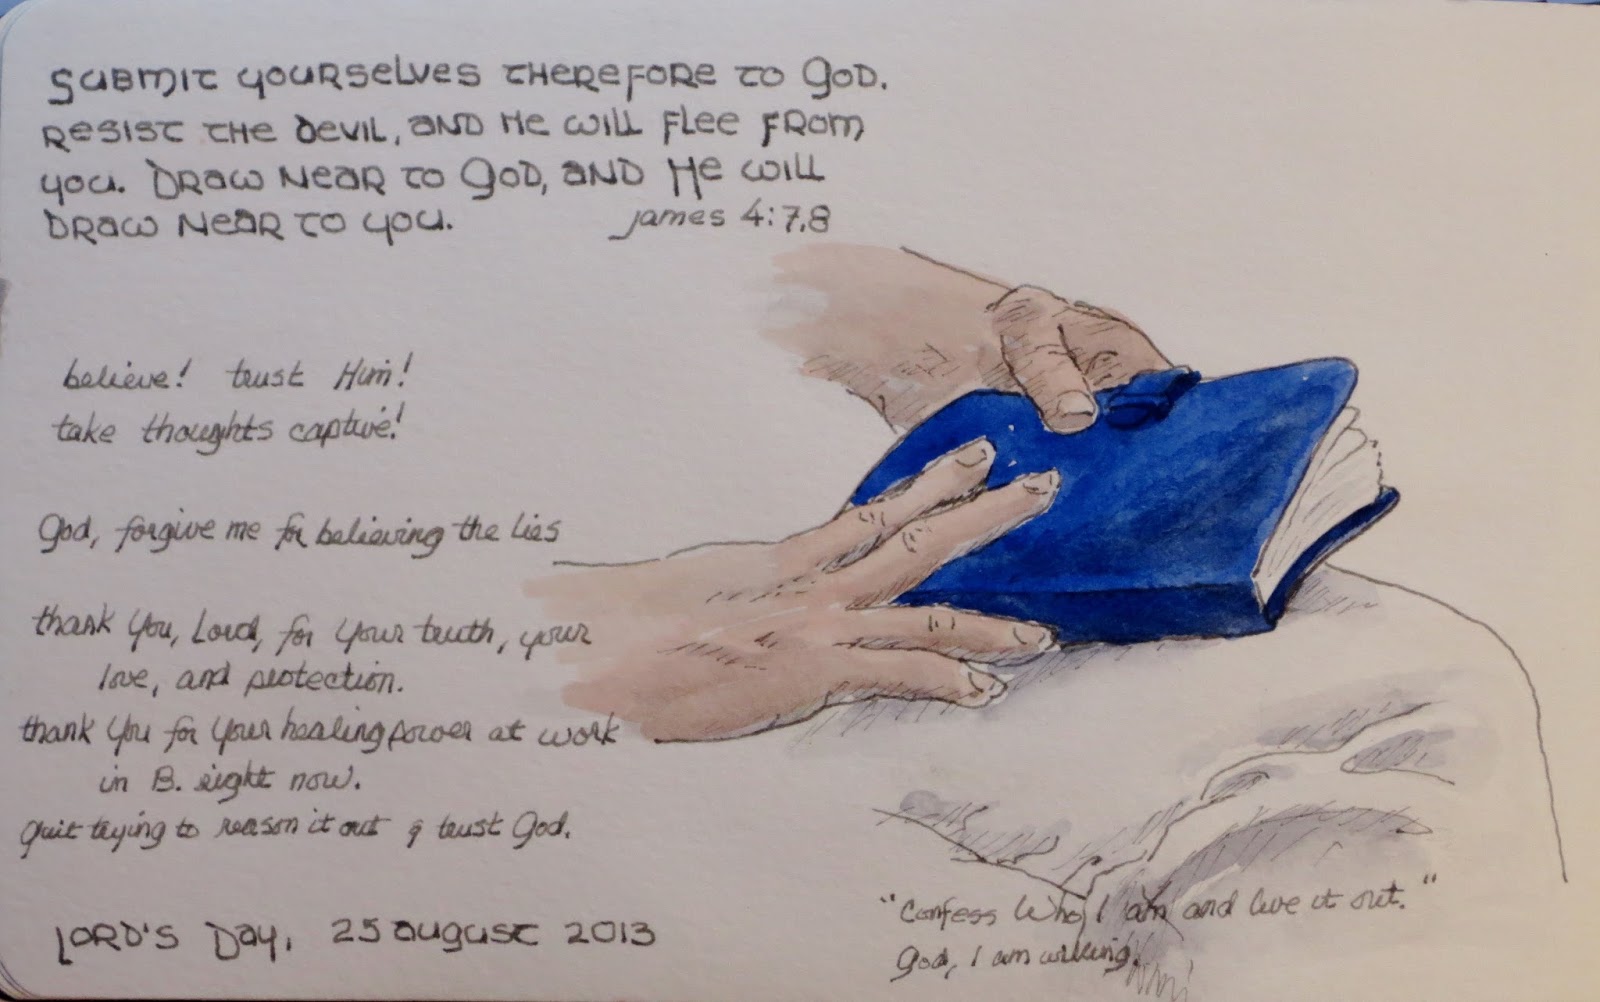 Submit yourselves therefore to God.
Resist the devil, and He will flee from
you. Draw near to God, and He will
draw near to you.
James 4:7,8
believe! trust Him!
take thoughts captive!
God, forgive me for believing the lies
thank You, Lord, for Your truth, your
love, and protection.
thank You for Your healing power at work
in B. right now.
quit trying to reason it out & trust God.
Lord's Day, 25 August 2013
"Confess Who I am and live it out."
God, I am willing.